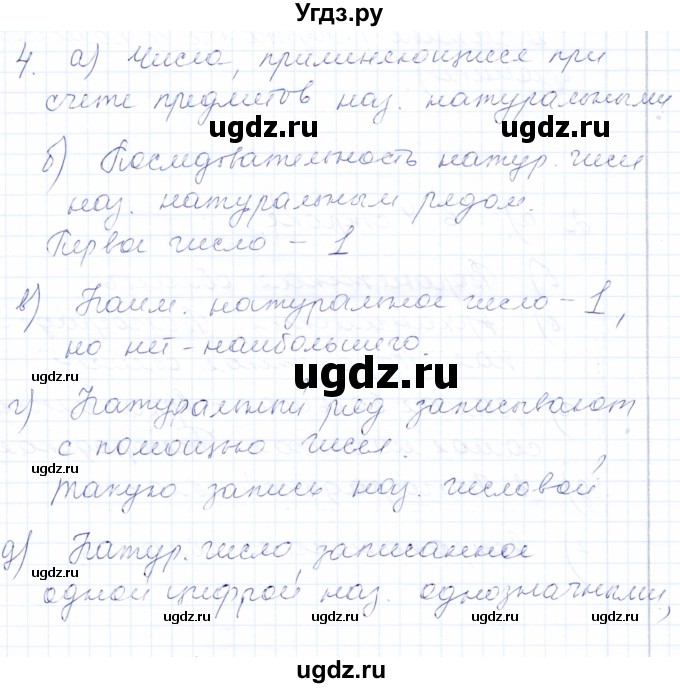 Угдз.ру
4. а) Числа, применяющиеся при
счете предметов наз. натуральными
ugdz.ru
ugdz.ru
б) Последовательность натур. чисел
наз. натуральным рядом.
ugdz.ru
Первое число – 1
в) Наим. натуральное число – 1,
но нет – наибольшего.
ugdz.ru
ugdz.ru
ugdz.ru
г) Натуральный ряд записывают
с помощью чисел.
ugdz.ru
ugdz.ru
такую запись наз. числовой,
д) Натур. число, записанное
ugdz.ru
одной цифрой наз. однозначными,
ugdz.ru
ugdz.ru
ugdz.ru